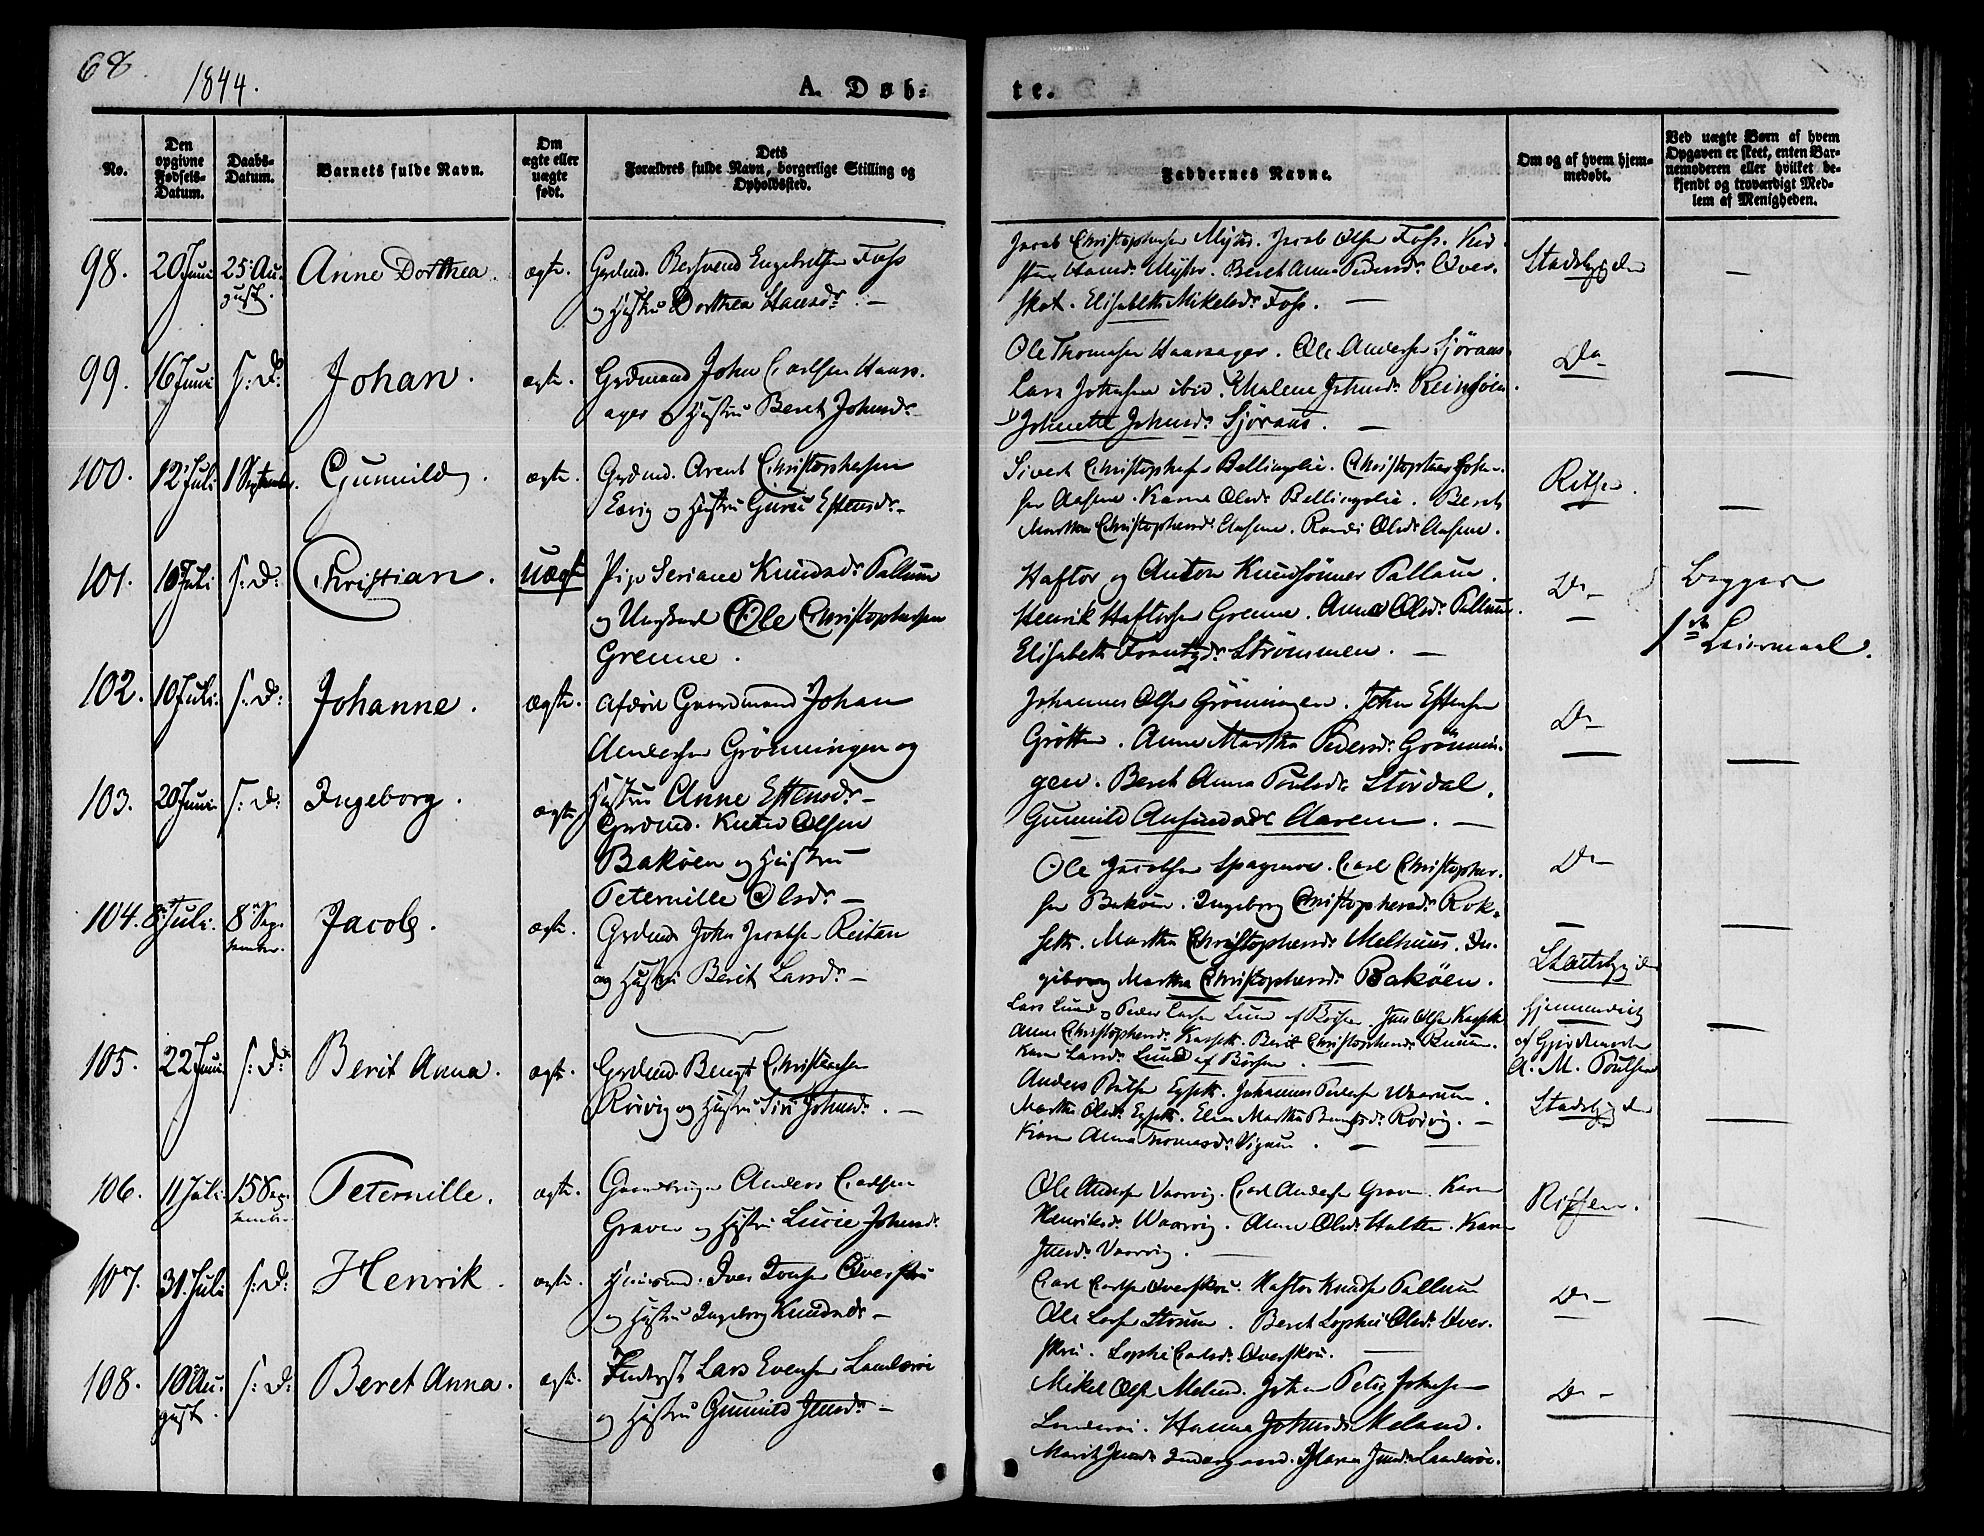 68.
1844.
A. Døb-
te.
No.
Den
opgivne
Fødsels-
Datum.
Daabs-
Datum.
Barnets fulde Navn.
Om
ægte eller
uægte
født.
Dets
Forældres fulde Navn, borgerlige Stilling og
Opholdssted.
Faddernes Navne.
Om og af hvem hjem-
medøbt.
Ved uægte Børn af hvem
Opgaven er skeet, enten Bar-
nemoderen eller hvilket be-
kjendt og troværdigt Med-
lem af Menigheden.
98. 20 Juni 25 Au-
gust.
Anne Dorthea. ægte.
Engebretsen Foss
og Hustru Dorthea Hansdr. —
Jacob Christophersen Jacob Olsen Foss.
Beret Anna Pedersdr. Over-
skot. Elisabeth Mikelsdr. Foss. —
Stadsbygden
—
99. 16 Juni s: D:
Johan. ægte.
Grdmand John Carlsen Haars-
ager og Hustru Beret Johnsdr. —
Ole Thomasen Haarsager. Ole Andersen Sjøraas.
Lars Johnsen ibid. Malene Johnsdr. Reinsøien.
Johnette Johnsdr. Sjøraas. —
Do
—
100. 12 Juli 1 September.
Gunnild. ægte.
Grdmd. Arent Christophersen
og Hustru Guru Estensdr. —
Sivert Christophersen Bellingslie. Christopher John-
sen Aasene. Karen Olsdr. Bellingslie. Beret
Martha Christophersdr. Aasene. Randi Olsdr. Aasene.
Ritsen.
—
101. 10 Juli s: D:
Christian. uægte
Pige Seriane Knudsdr. Pallum
og Ungkarl Ole Christophersen
Grenne.
Haftor og Anton Knudsønner Pallum.
Henrik Haftorsen Grenne. Anna Olsdr. Pallum.
Elisabeth Strømmen. —
Do —
Begges
1ste Leiermaal.
102. 10 Juli s: D:
Johanne. ægte.
Afdød Gaardmand Johan
Andersen Grønningen og
Hustru Anne Estensdr. —
Johannes Olsen Grønningen. John Estensen
Grøtten. Anne Martha Pedersdr. Grønnin-
gen. Beret Anna Poulsdr. Stordal.
Gunnild Amundsdr. Aarem. —
Do
—
103. 20 Juni s: D:
Ingeborg. ægte
Grdmd. Knud Olsen
Bakøen og Hustru
Peternille Olsdr. —
Ole Jacobsen Carl Christopher-
sen Bakøen. Ingeborg Christophersdr. Rok-
seth. Martha Christophersdr. Melhuus. In-
geborg Martha Christophersdr. Bakøen.
Do
—
104. 8 Juli. 8 Sep-
tember.
Jacob. ægte.
Grdmd. John Jacobsen Reitan
og Hustru Berit Larsdr. —
Lars Lund og Peder Larsen Lund af Børsen. Jens Olsen
Anne Christophersdr. Berit Christophersdr. Ruum.
Karen Larsdr. Lund af Børsen. —
Stadsbygden
hjemmedøbt
af Gjordmoder
A. M. Poulsen
—
105. 22 Juni s: D:
Berit Anna. ægte.
Grdmd. Bengt Christensen
Rødvig og Hustru Siri Johnsdr. —
Anders Johannes Pedersen
Martha Olsdr. Elen Martha Bengtsdr. Rødvig. —
Karen Anna Thomasdr. Vigum. —
Stadsbygden
—
106. 11 Juli. 15 Sep-
tember
Peternille. ægte.
Gaardbruger Anders Carlsen
Graven og Hustru Lucie Johnsdr.
Ole Andersen Vaarvig. Carl Andersen Graven. Karen
Henriksdr. Vaarvig. Anne Olsdr. Halten. Karen
Jensdr. Vaarvig. —
Rissen.
—
107. 31. Juli s: D:
Henrik. ægte.
Huusmd. Iver Overskou
og Hustru Ingeborg Knudsdr. —
Carl Carlsen Overskou. Haftor Knudsen Pallum
Ole Strøm. Beret Sophie Olsdr. Over-
skou. Sophie Carlsdr. Overskou. —
Do —
—
108. 10 Au-
gust.
s: D:
Beret Anna. ægte.
Inderst Lars Evensen Landerøi
og Hustru Gunnild Jensdr. —
Mikel Olsen Meland. Johan Peter Johnsen
Landerøi. Hanna Johnsdr. Meland.
Marit Jensdr. Maren Jensdr. Landerøi.
Do —
—